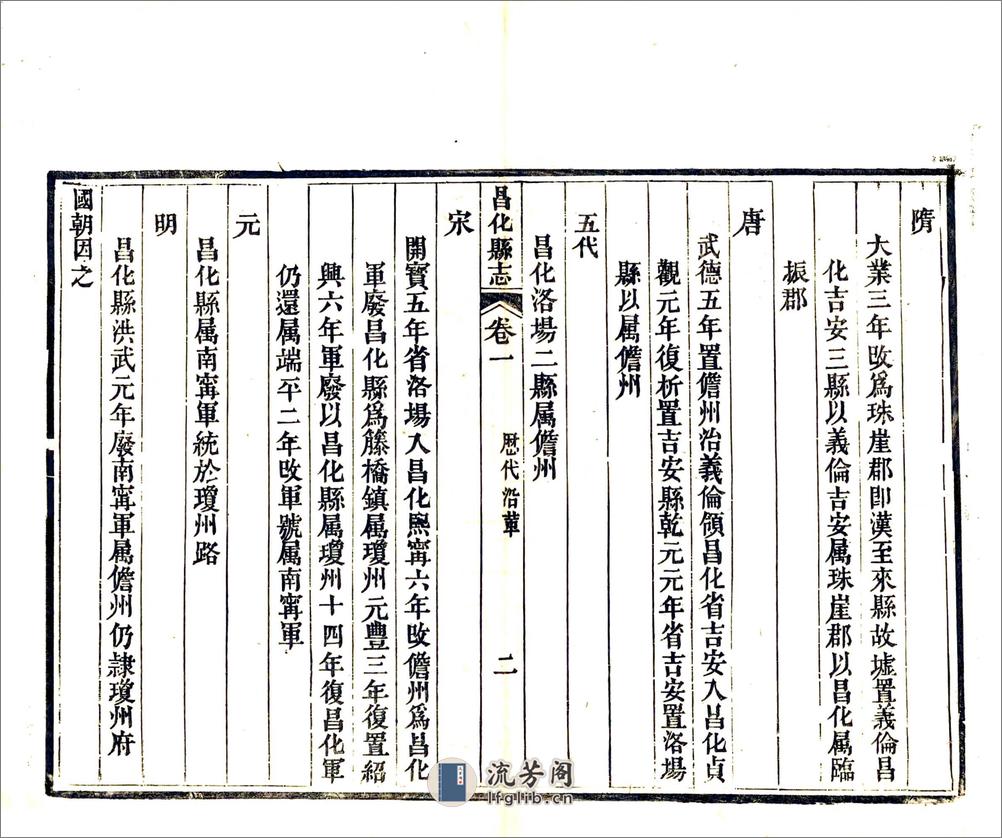 隋
大業三年攺爲珠崖郡卽漢至來縣故墟置義倫昌
化吉安三縣以義倫吉安属珠崖郡以昌化属臨
振郡
唐
武德五年置儋州治義倫領昌化省吉安入昌化貞
觀元年復析置吉安縣乾元元年省吉安置洛場
縣以属儋州
五代
昌化洛場二縣属儋州
昌化縣志 卷一 歷代沿革 二
宋
開寶五年省洛場入昌化熙寗六年攺儋州爲昌化
軍廢昌化縣爲籐橋鎮属瓊州元豐三年復置紹
興六年軍廢以昌化縣属瓊州十四年復昌化軍
仍還属端平二年攺軍號属南寗軍
元
昌化縣属南寗軍統於瓊州路
明
昌化縣洪武元年廢南寗軍属儋州仍隷瓊州府
國朝因之
流芳阁
lfglib.cn